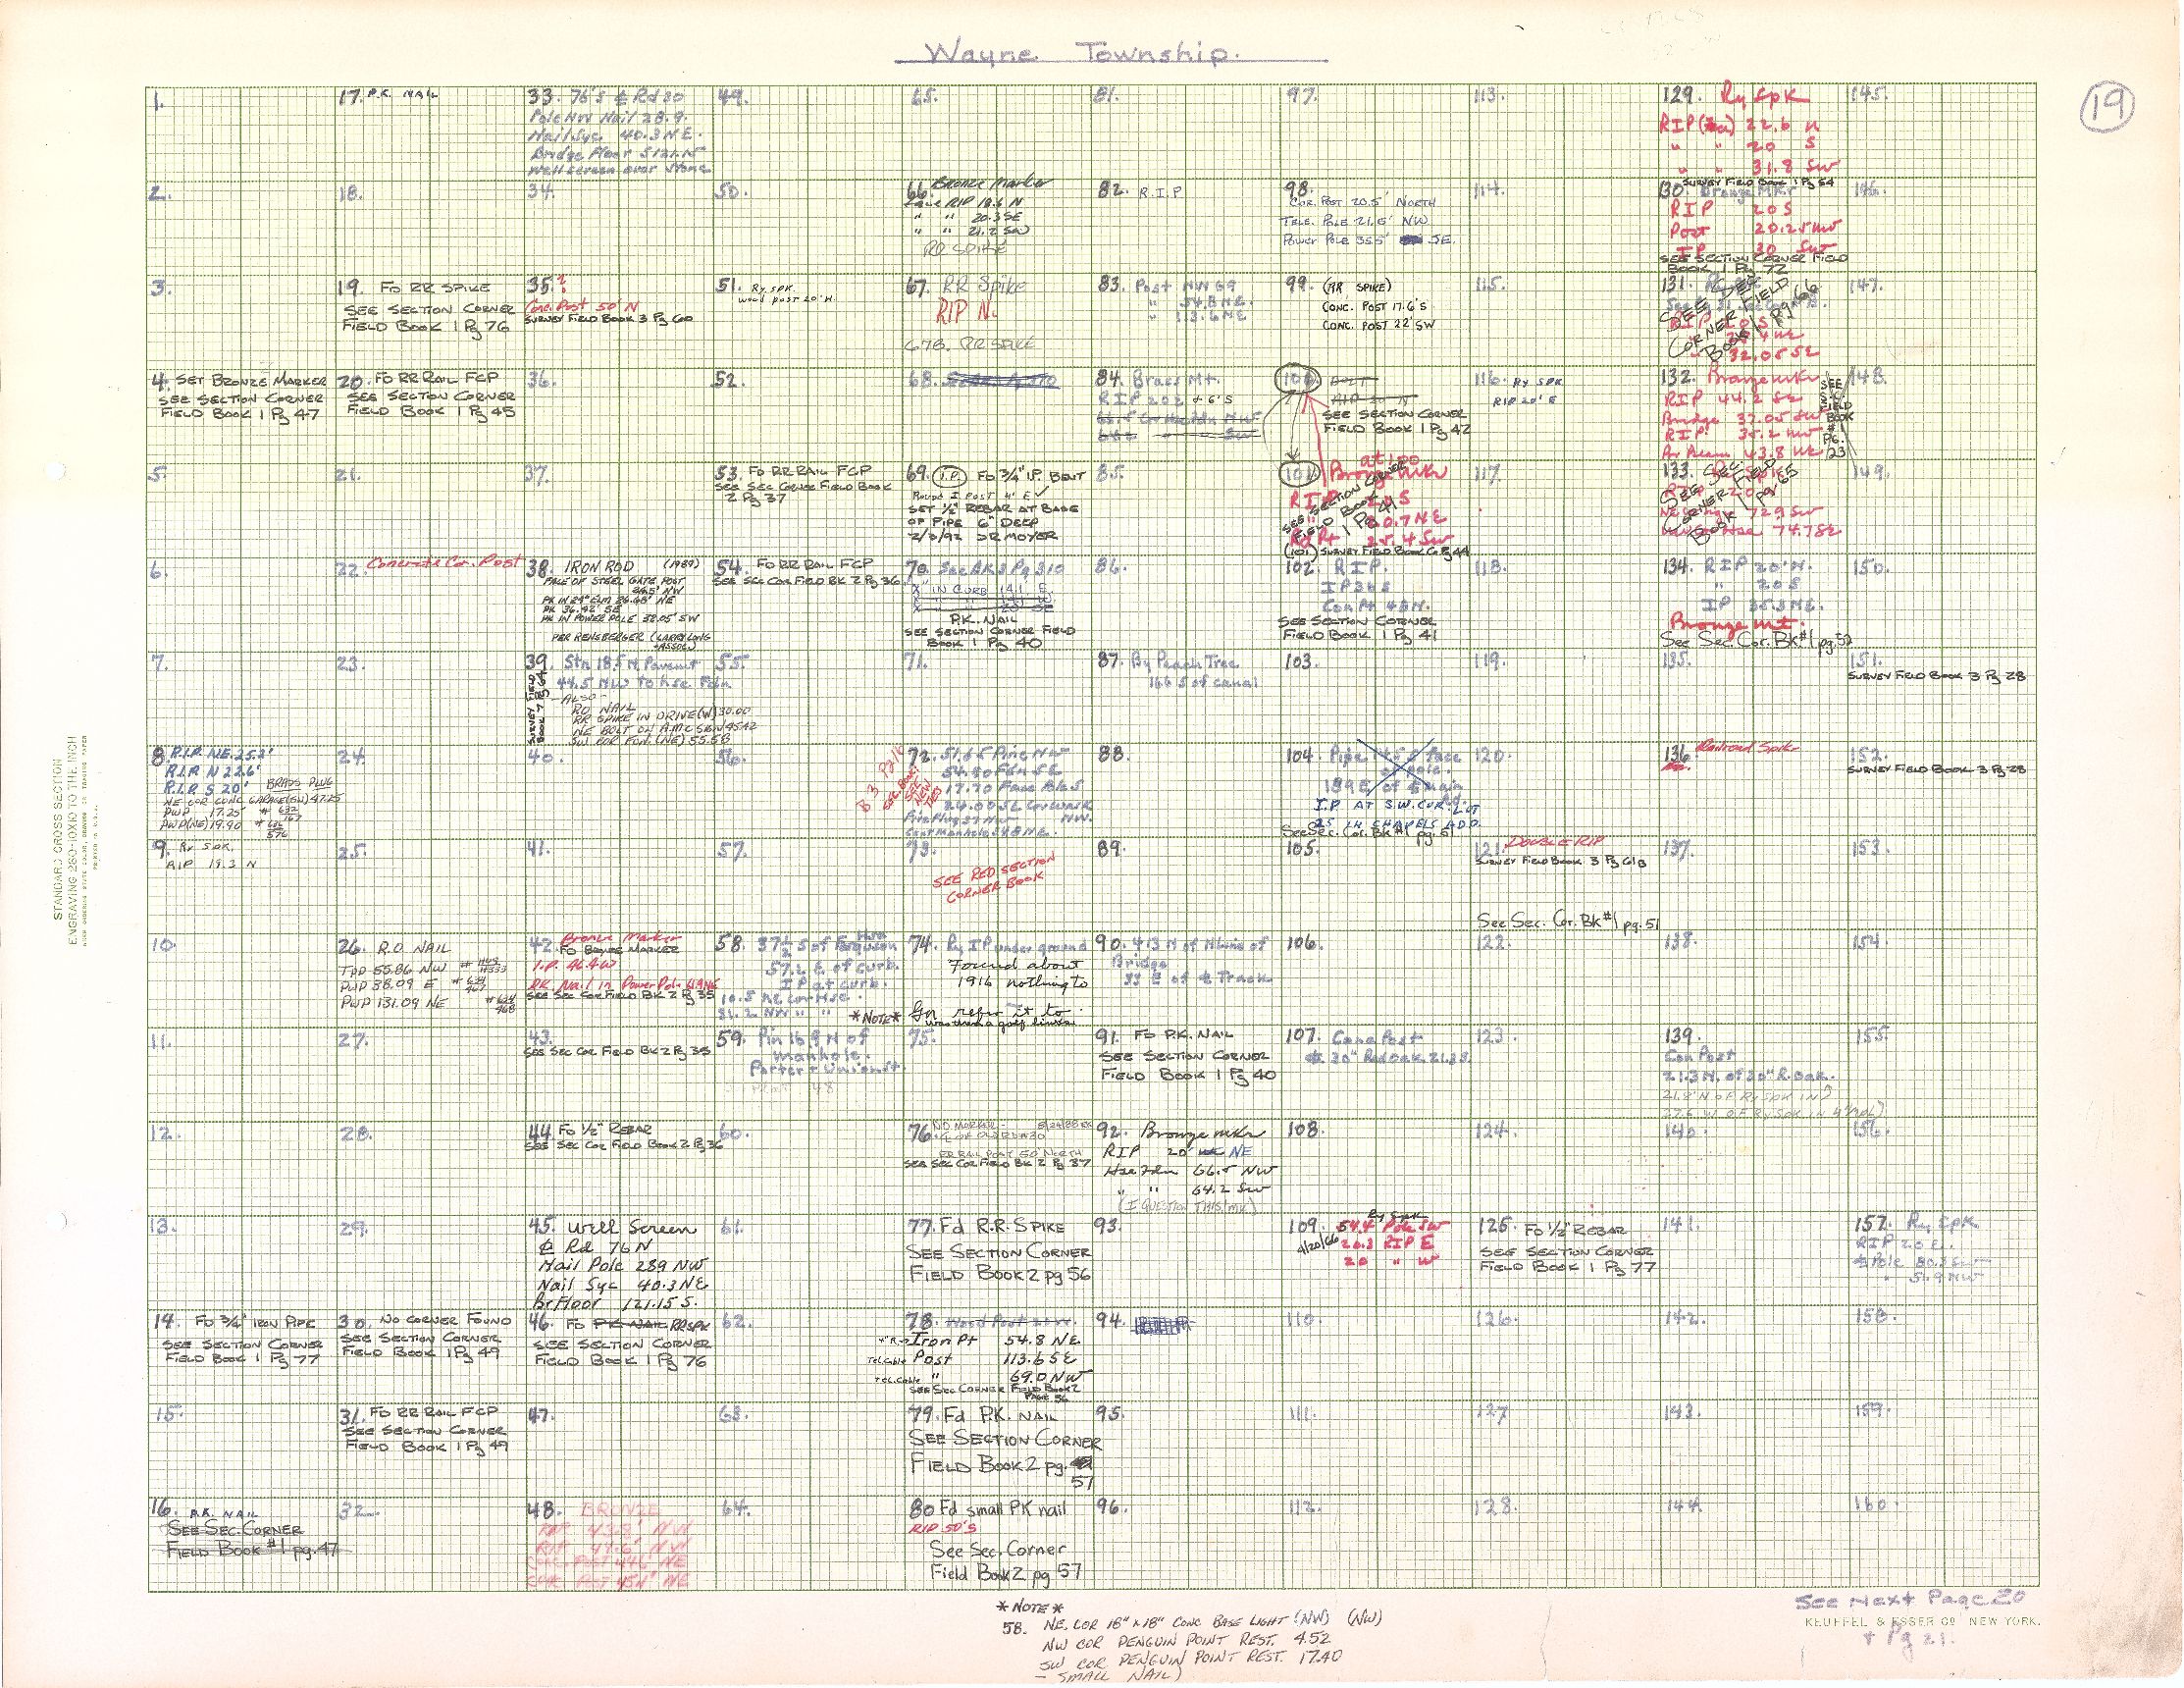 Wayne Township.
19
1.
2.
3.
4. SET BRONZE MARKER
SEE SECTION CORNER
FIELD BOOK 1 Pg 47
5.
6.
7.
8. R.I.P. NE 25.2'
R.I.P. N 22.6'
R.I.P. S 20'
BRASS PLUG
NE COR CONC GARAGE (SW) 47.25
PWP 17.25
PWP (NE) 19.90
9. Ry SPK.
RIP 19.3 N
10.
11.
12.
13.
14. FD 3/4" IRON PIPE
SEE SECTION CORNER
FIELD BOOK 1 Pg 77
15.
16. P.K. NAIL
SEE SEC. CORNER
FIELD BOOK #1 pg. 47
17. P.K. NAIL
18.
19. FD RR SPIKE
SEE SECTION CORNER
FIELD BOOK 1 Pg 76
20. FD RR RAIL FCP
SEE SECTION CORNER
FIELD BOOK 1 Pg 45
21.
22. Concrete Cor. Post
23.
24.
25.
26. R.O. NAIL
TPD 55.86 NW
PWP 38.09 E
PWP 131.09 NE
27.
28.
29.
30. NO CORNER FOUND
SEE SECTION CORNER
FIELD BOOK 1 Pg 49
31. FD RR RAIL FCP
SEE SECTION CORNER
FIELD BOOK 1 Pg 49
32.
33. 76's ¢ Rd 30
Pole NW Nail 28.9.
Nail Syc. 40.3 NE.
Bridge Floor S 121.15
Well Screen over Stone
34.
35. ?
Conc. Post 50' N
SURVEY FIELD BOOK 3 Pg 60
36.
37.
38. IRON ROD (1989)
FACE OF STEEL GATE POST
26.5' NW
PK IN 24" ELM 26.68' NE
PK 36.42' SE
PK IN POWER POLE 32.05' SW
PER RENSBERGER (LARRY LONG
ASSOC)
39. Stn 18.5 N. Pavemt
44.5 NW to hse. Fdn
SURVEY FIELD BOOK 7 Pg 64
-ALSO-
RO NAIL
RR SPIKE IN DRIVE (W) 30.00
SW COR FDN. (NE) 55.58
40.
41.
42. Bronze Marker
FD BRONZE MARKER
I.P. 46.4 W
P.K. Nail in Power Pole
SEE SEC COR FIELD BK 2 Pg 35
43.
SEE SEC COR FIELD BK 2 Pg 35
44. FD 1/2" REBAR
SEE SEC COR FIELD BOOK 2 Pg 36
45. Well Screen
¢ Rd 76 N
Nail Pole 289 NW
Nail Syc 40.3 NE
Br Floor 121.15 S.
46. FD PK NAIL RRSPK
SEE SECTION CORNER
FIELD BOOK 1 Pg 76
47.
48. BRONZE
RIP 43.8' NW
RIP 47.6' NW
CONC POST 44.6' NE
CONC POST 45.4' NE
49.
50.
51. Ry. SPK.
WOOD POST 20' N.
52.
53. FD RR RAIL FCP
SEE SEC CORNER FIELD BOOK
2 Pg 37
54. FD RR RAIL FCP
SEE SEC COR FIELD BK 2 Pg 36
55.
56.
57.
58. 37½ S of Ferguson Hse
57.2 E of curb.
IP at curb.
10.5 NE Cor Hse.
31.2 NW " "
*NOTE*
59. Pin 16.9 N of
manhole.
Porter & Union St.
60.
61.
62.
63.
64.
65.
66. Bronze Marker
RIP 18.6 N
" " 20.3 SE
" " 21.2 SW
RR SPIKE
67. RR Spike
RIP N.
67B. RR SPIKE
68.
69. I.P. FD 3/4" I.P. BENT
Round I POST 4' E ✓
SET 1/2" REBAR AT BASE
OF PIPE 6" DEEP
2/3/92 DR MOYER
70. See BK 3 Pg 310
X IN CURB 14.1 E
P.K. NAIL
SEE SECTION CORNER FIELD
BOOK 1 Pg 40
71.
72. 51.65 Pine NW
54.50 Fdn SE
17.70 Face Blk S
24.00 SE Cor Walk
NW.
Fire Plug 37 NW
Cent Manhole 34.8 NE.
73.
SEE RED SECTION
CORNER BOOK
74. Ry IP under ground
Found about
1916 nothing to
for refer it to
was then a golf links.
75.
76. NO MARKER
¢ OF OLD RD 30
RR RAIL POST 50' NORTH
SEE SEC COR FIELD BK 2 Pg 37
77. Fd R.R. SPIKE
SEE SECTION CORNER
FIELD BOOK 2 pg 56
78. Wood Post 20 W.
Iron Pt 54.8 NE.
Tel. Cable Post 113.6 SE
Tel. Cable " 69.0 NW
SEE SEC CORNER FIELD BOOK 2
PAGE 56
79. Fd P.K. NAIL
SEE SECTION CORNER
FIELD BOOK 2 pg.
57
80 Fd small PK nail
RIP 50'S
See Sec. Corner
Field Book 2 pg 57
81.
82. R.I.P
83. Post NW 69
" 54.8 NE.
" 113.6 NE
84. Brass Mt.
RIP 20.2 & 6'S
85.
86.
87. By Peach Tree
166 S of canal
88.
89.
90. 413 N of N line of
Bridge
33 E of ¢ Track
91. FD P.K. NAIL
SEE SECTION CORNER
FIELD BOOK 1 Pg 40
92. Bronze mkr
RIP 20' NE
Hse Fdn 66.5 NW
" " 64.2 SW
(I QUESTION THIS MK)
93.
94.
95.
96.
97.
98.
COR. POST 20.5' NORTH
TELE. POLE 21.6' NW
POWER POLE 35.5' SE.
99. (RR SPIKE)
CONC. POST 17.6' S
CONC. POST 22' SW
100. BOLT
RIP 30 N
SEE SECTION CORNER
FIELD BOOK 1 Pg 42
101 at 100
Bronze Mkr
SEE SECTION CORNER
FIELD BOOK 1 Pg 41
20.7 NE
25.4 SW
(101) SURVEY FIELD BOOK 6 Pg 44
102. R.I.P.
IP 30 S
Con Pt 48 N.
SEE SECTION CORNER
FIELD BOOK 1 Pg 41
103.
104. Pipe
of pole.
189 E of ¢ Main
I.P. AT S.W. COR. LOT
25 LH CHAPELS ADD.
See Sec. Cor. Bk #1 pg. 51
105.
106.
107. Cone Post
¢ 30" Red Oak 21.3 S.
108.
109. Ry Spk
54.4 Pole SW
4/20/66 20.3 RIP E
20 " W
110.
111.
112.
113.
114.
115.
116. Ry SPK
RIP 20' E
117.
118.
119.
120.
121. DOUBLE RIP
SURVEY FIELD BOOK 3 Pg 61B
See Sec. Cor. Bk #1 pg. 51
122.
123.
124.
125. FD 1/2" REBAR
SEE SECTION CORNER
FIELD BOOK 1 Pg 77
126.
127.
128.
129. Ry Spk
RIP 22.6 N
" " 20 S
" " 31.8 SW
SURVEY FIELD BOOK 1 Pg 54
130. Bronze Mkr
RIP 20 S
Post 20.25 NW
IP 30 SW
SEE SECTION CORNER FIELD
BOOK 1 Pg 72
131.
SEE SEC
CORNER FIELD
BOOK 1 Pg 66
RIP 20 S
32.05 SE
132. Bronze mkr
RIP 44.2 SE
Bridge 37.05 SW
RIP 35.2 NW
43.8 NE
SEE
FIELD
BOOK
#1
PG.
23
133.
SEE SEC
CORNER FIELD
BOOK 1 pg 65
72.9 SW
74.7 SE
134. RIP 20' N.
" 20 S
IP 35.3 NE.
Bronze Mt.
See Sec. Cor. Bk #1 pg. 52
135.
136 Railroad Spike
137.
138.
139.
Con Post
21.3 N. of 20" R. Oak.
140.
141.
142.
143.
144.
145.
146.
147.
148.
149.
150.
151.
SURVEY FIELD BOOK 3 Pg 28
152.
SURVEY FIELD BOOK 3 Pg 28
153.
154.
155.
156.
157. Ry Spk
RIP 20 E.
¢ Pole 80.3 SW
" 51.9 NW
158.
159.
160.
*NOTE*
58. NE. COR 18" x 18" CONC BASE LIGHT (NW) (NW)
NW COR PENGUIN POINT REST. 4.52
SW COR PENGUIN POINT REST. 17.40
- SMALL NAIL)
See Next Page 20
KEUFFEL & ESSER CO. NEW YORK.
+ Pg 21.
STANDARD CROSS SECTION
ENGRAVING 280-10X10 TO THE INCH